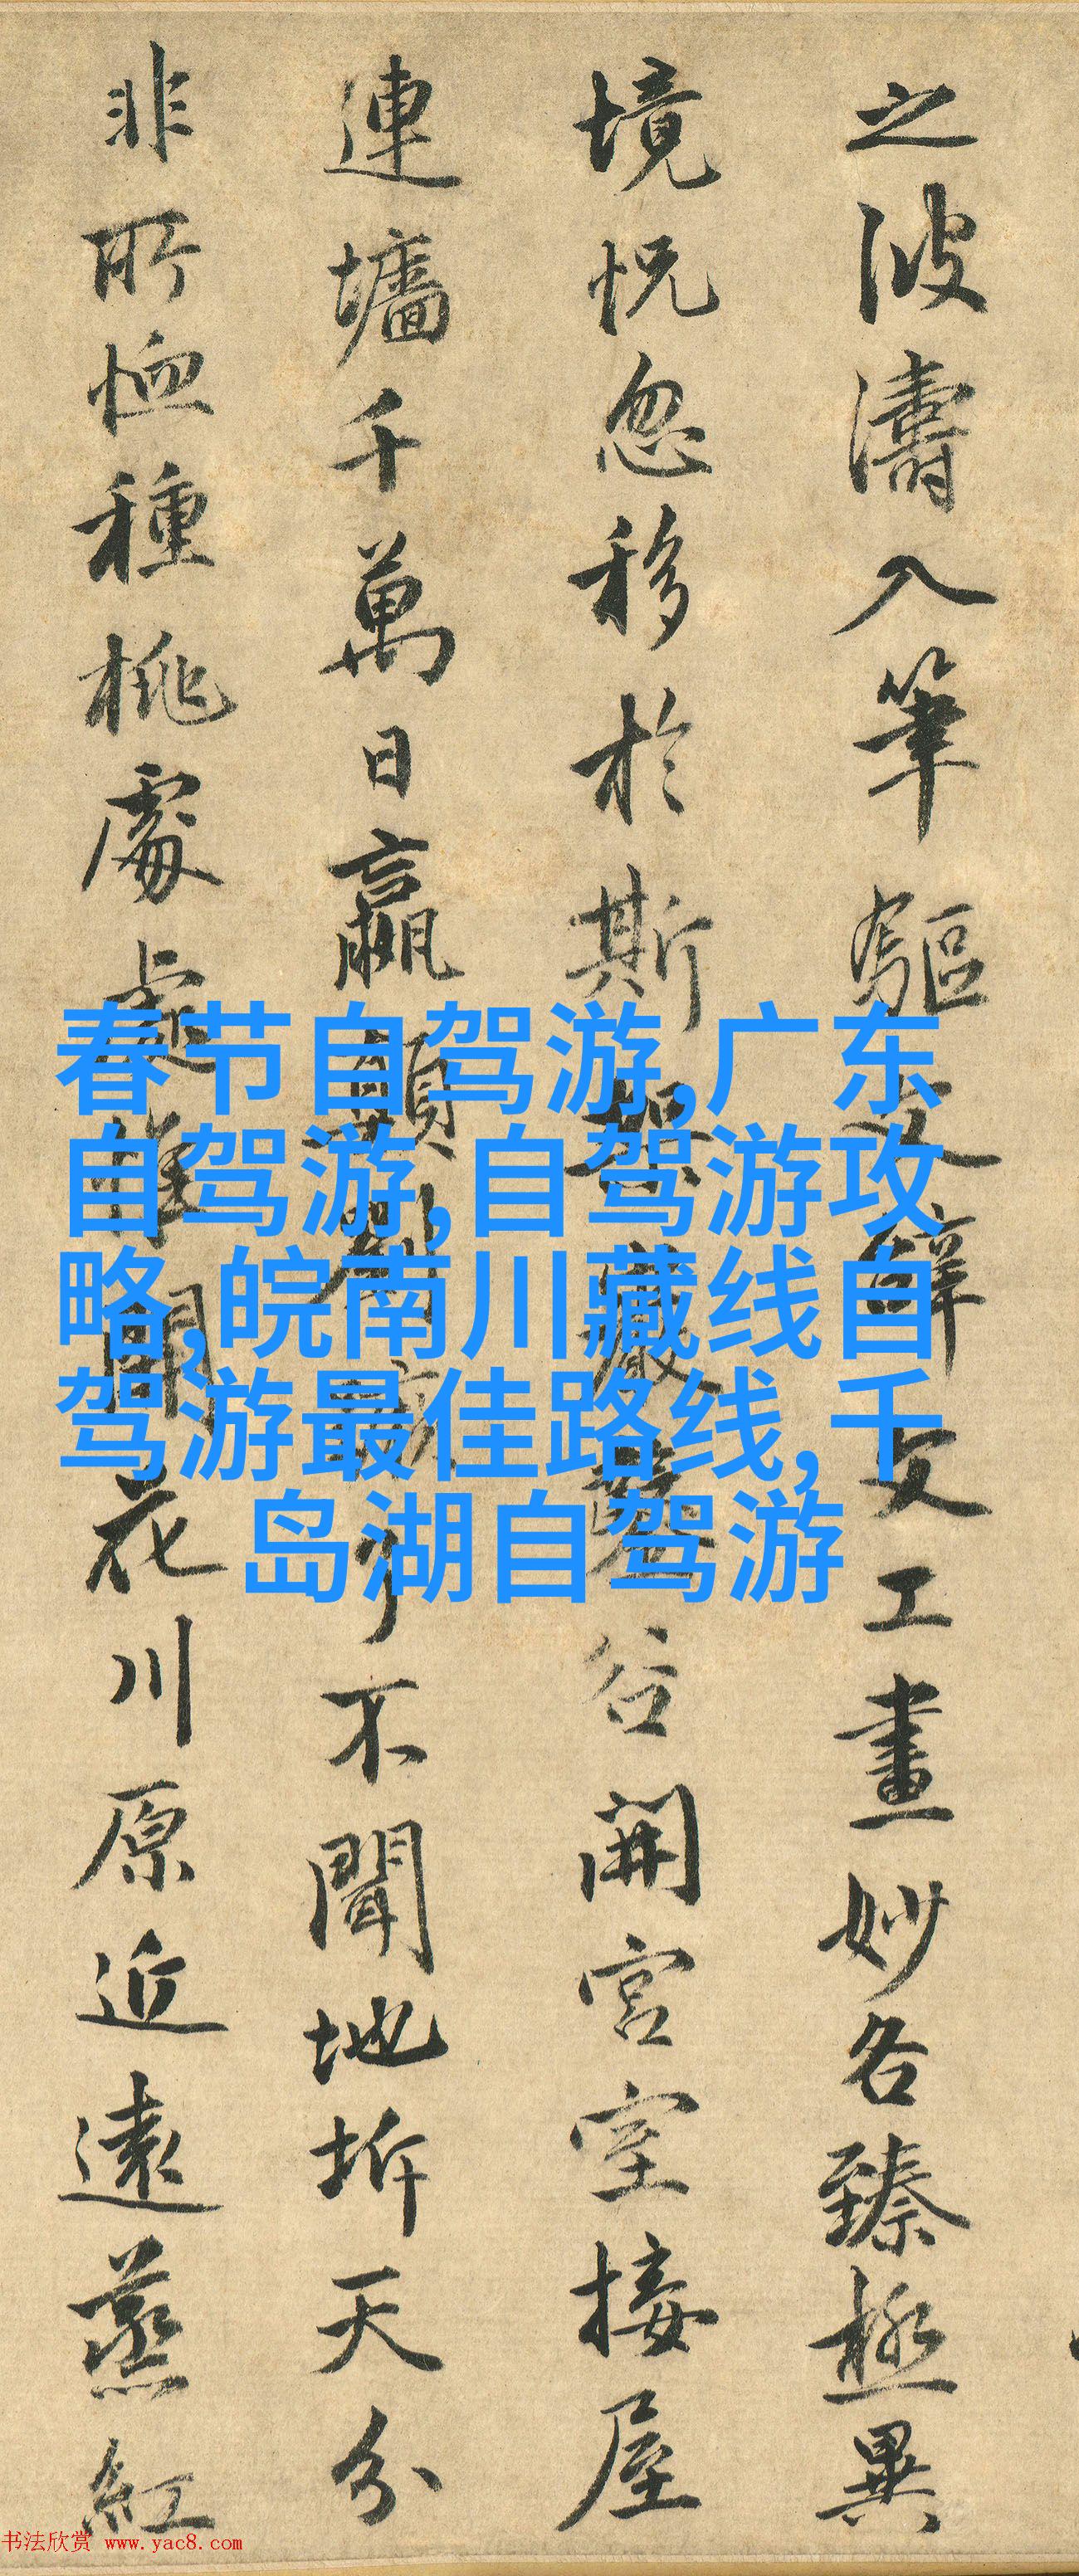 之波濤入筆驅文辭文工畫妙各臻極異
境怳忽移於斯架巖鑿谷開宮室接屋
連墻千萬日嬴顛劉蹶了不聞地坼天分
非所恤種桃處處惟開花川原近遠蒸紅
春节自驾游,广东
自驾游,自驾游攻
略,皖南川藏线自
驾游最佳路线,千
岛湖自驾游
书法欣赏 www.yac8.com